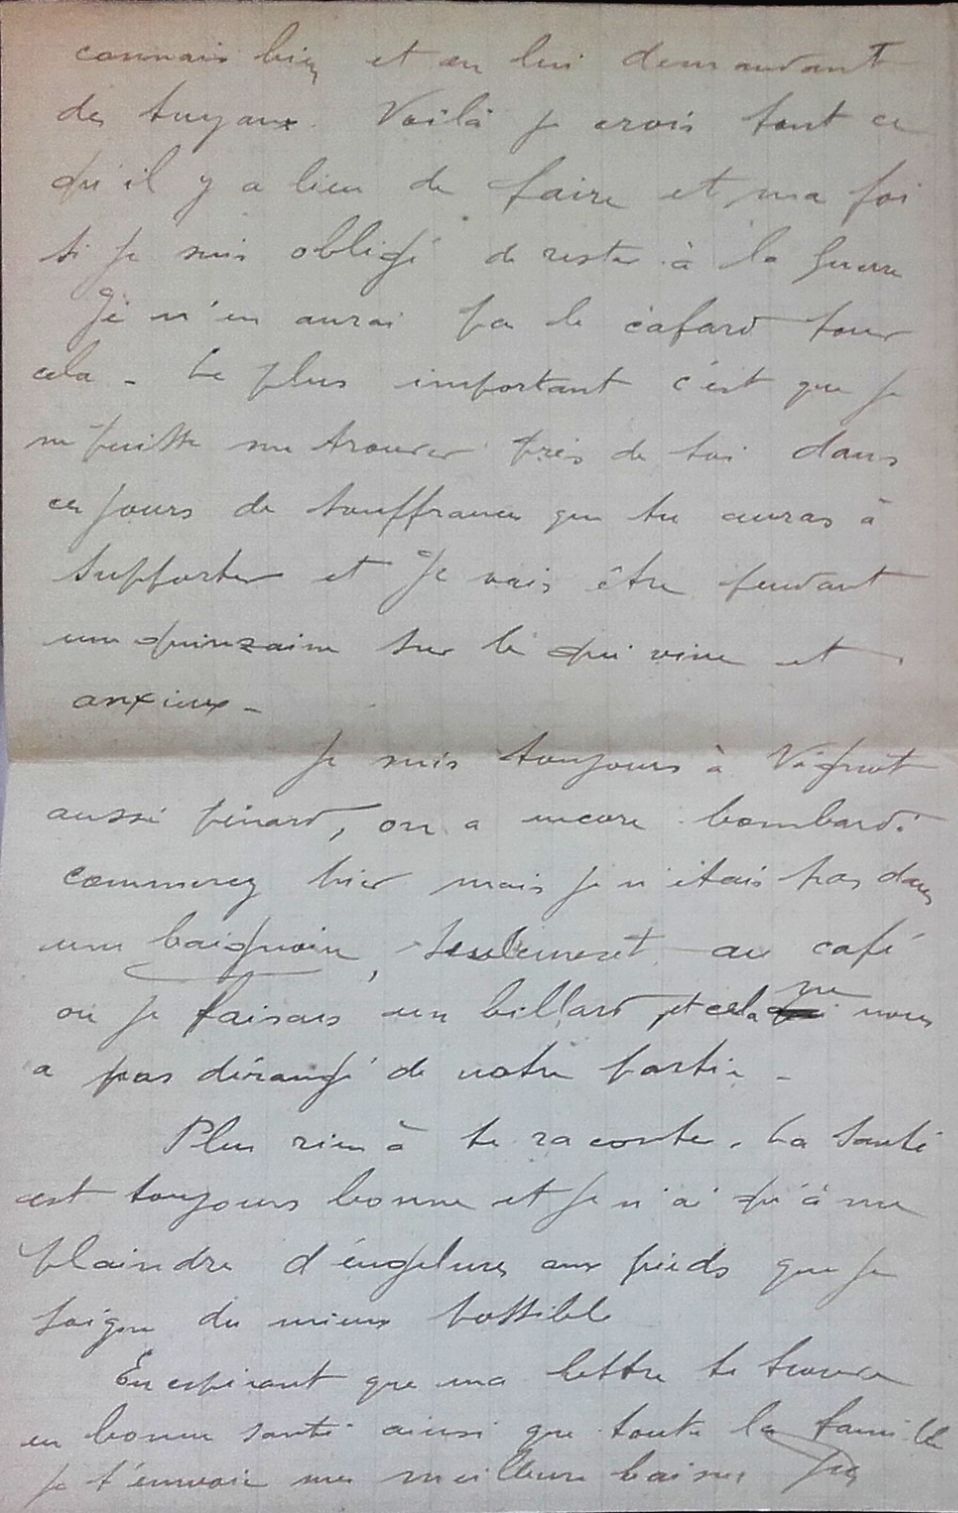 connais bien et en lui demandant
des tuyaux. Voilà je crois tout ce
qu'il y a lieu de faire et ma foi
si je suis obligé de rester à la guerre
Je n'en aurai pas le cafard pour
cela - Le plus important c'est que je
ne puisse me trouver près de toi dans
ces jours de souffrances que tu auras à
supporter et Je vais être pendant
une quinzaine sur le qui vive et
anxieux -
Je suis toujours à Vignot
aussi peinard, on a encore bombardé
Commercy hier mais je n'étais pas dans
une baignoire, seulement au café
où je faisais un billard, et cela ne nous
a pas dérangé de notre partie -
Plus rien à te raconter. La santé
est toujours bonne et je n'ai qu'à me
plaindre d'engelures aux pieds que je
soigne du mieux possible
En espérant que ma lettre te trouvera
en bonne santé ainsi que toute la famille
je t'envoie mes meilleurs baisers